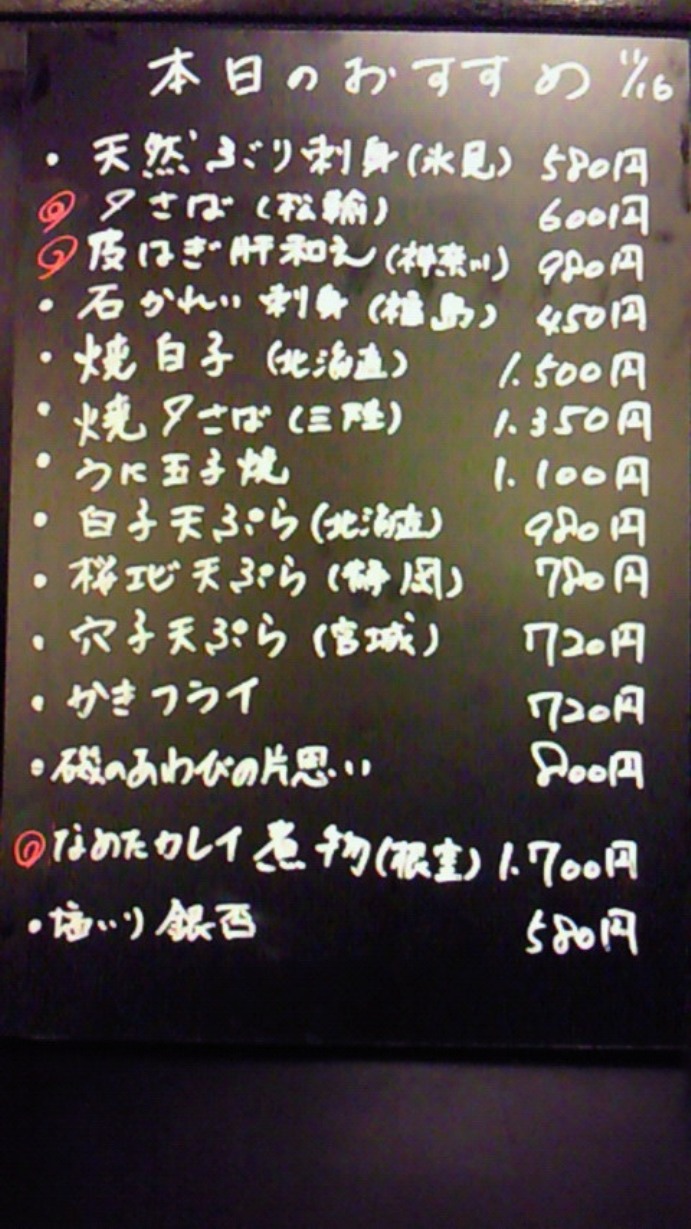 本日のおすすめ 11/16
・天然ぶり刺身(氷見) 580円
◎〆さば(松輪) 600円
◎皮はぎ肝和え(神奈川) 980円
・石かれい刺身(福島) 450円
・焼白子(北海道) 1.500円
・焼〆さば(三陸) 1.350円
・うに玉子焼 1.100円
・白子天ぷら(北海道) 980円
・桜エビ天ぷら(静岡) 780円
・穴子天ぷら(宮城) 720円
・かきフライ 720円
・磯のあわびの片思い 800円
◎なめたカレイ煮物(根室) 1.700円
・塩いり銀杏 580円